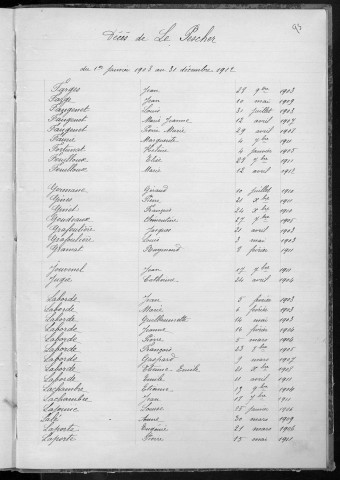 93
Décès de Le Pescher
du 1er janvier 1903 au 31 décembre 1912
Farges Jean 28 9bre 1903
Farge Jean 10 mai 1909
Faugenet Louis 31 juillet 1903
Faugenet Marie Jeanne 12 avril 1907
Faugenet Pierre Marie 29 avril 1908
Faure Marguerite 4 9bre 1911
Hélène 4 janvier 1905
Feuilloux Elise 28 9bre 1911
Feuilloux Marie 12 avril 1912
Germane Géraud 10 juillet 1910
Gines Pierre 21 Xbre 1911
Ginet François 24 Xbre 1904
27 9bre 1905
Grafouillère Jacques 21 avril 1903
Grafoulière Anne 3 mai 1903
Granet Raymond 2 février 1911
Journel Jean 17 9bre 1911
Juge Catherine 24 avril 1904
Laborde Jean 5 février 1903
Laborde Marie 6 février 1903
Laborde Guillaumette 14 mai 1903
Laborde Jeanne 16 février 1904
Laborde Pierre 5 mars 1904
Laborde François 23 9bre 1905
Laborde Gaspard 9 mars 1907
Laborde Etienne Emile 21 Xbre 1908
Laborde Emile 11 avril 1911
Lachambre Etienne 19 9bre 1904
Lachambre Jean 18 9bre 1911
Louise 25 janvier 1910
Anne 30 mars 1909
Laporte Eugénie 21 mars 1906
Laporte Pierre 15 mai 1911